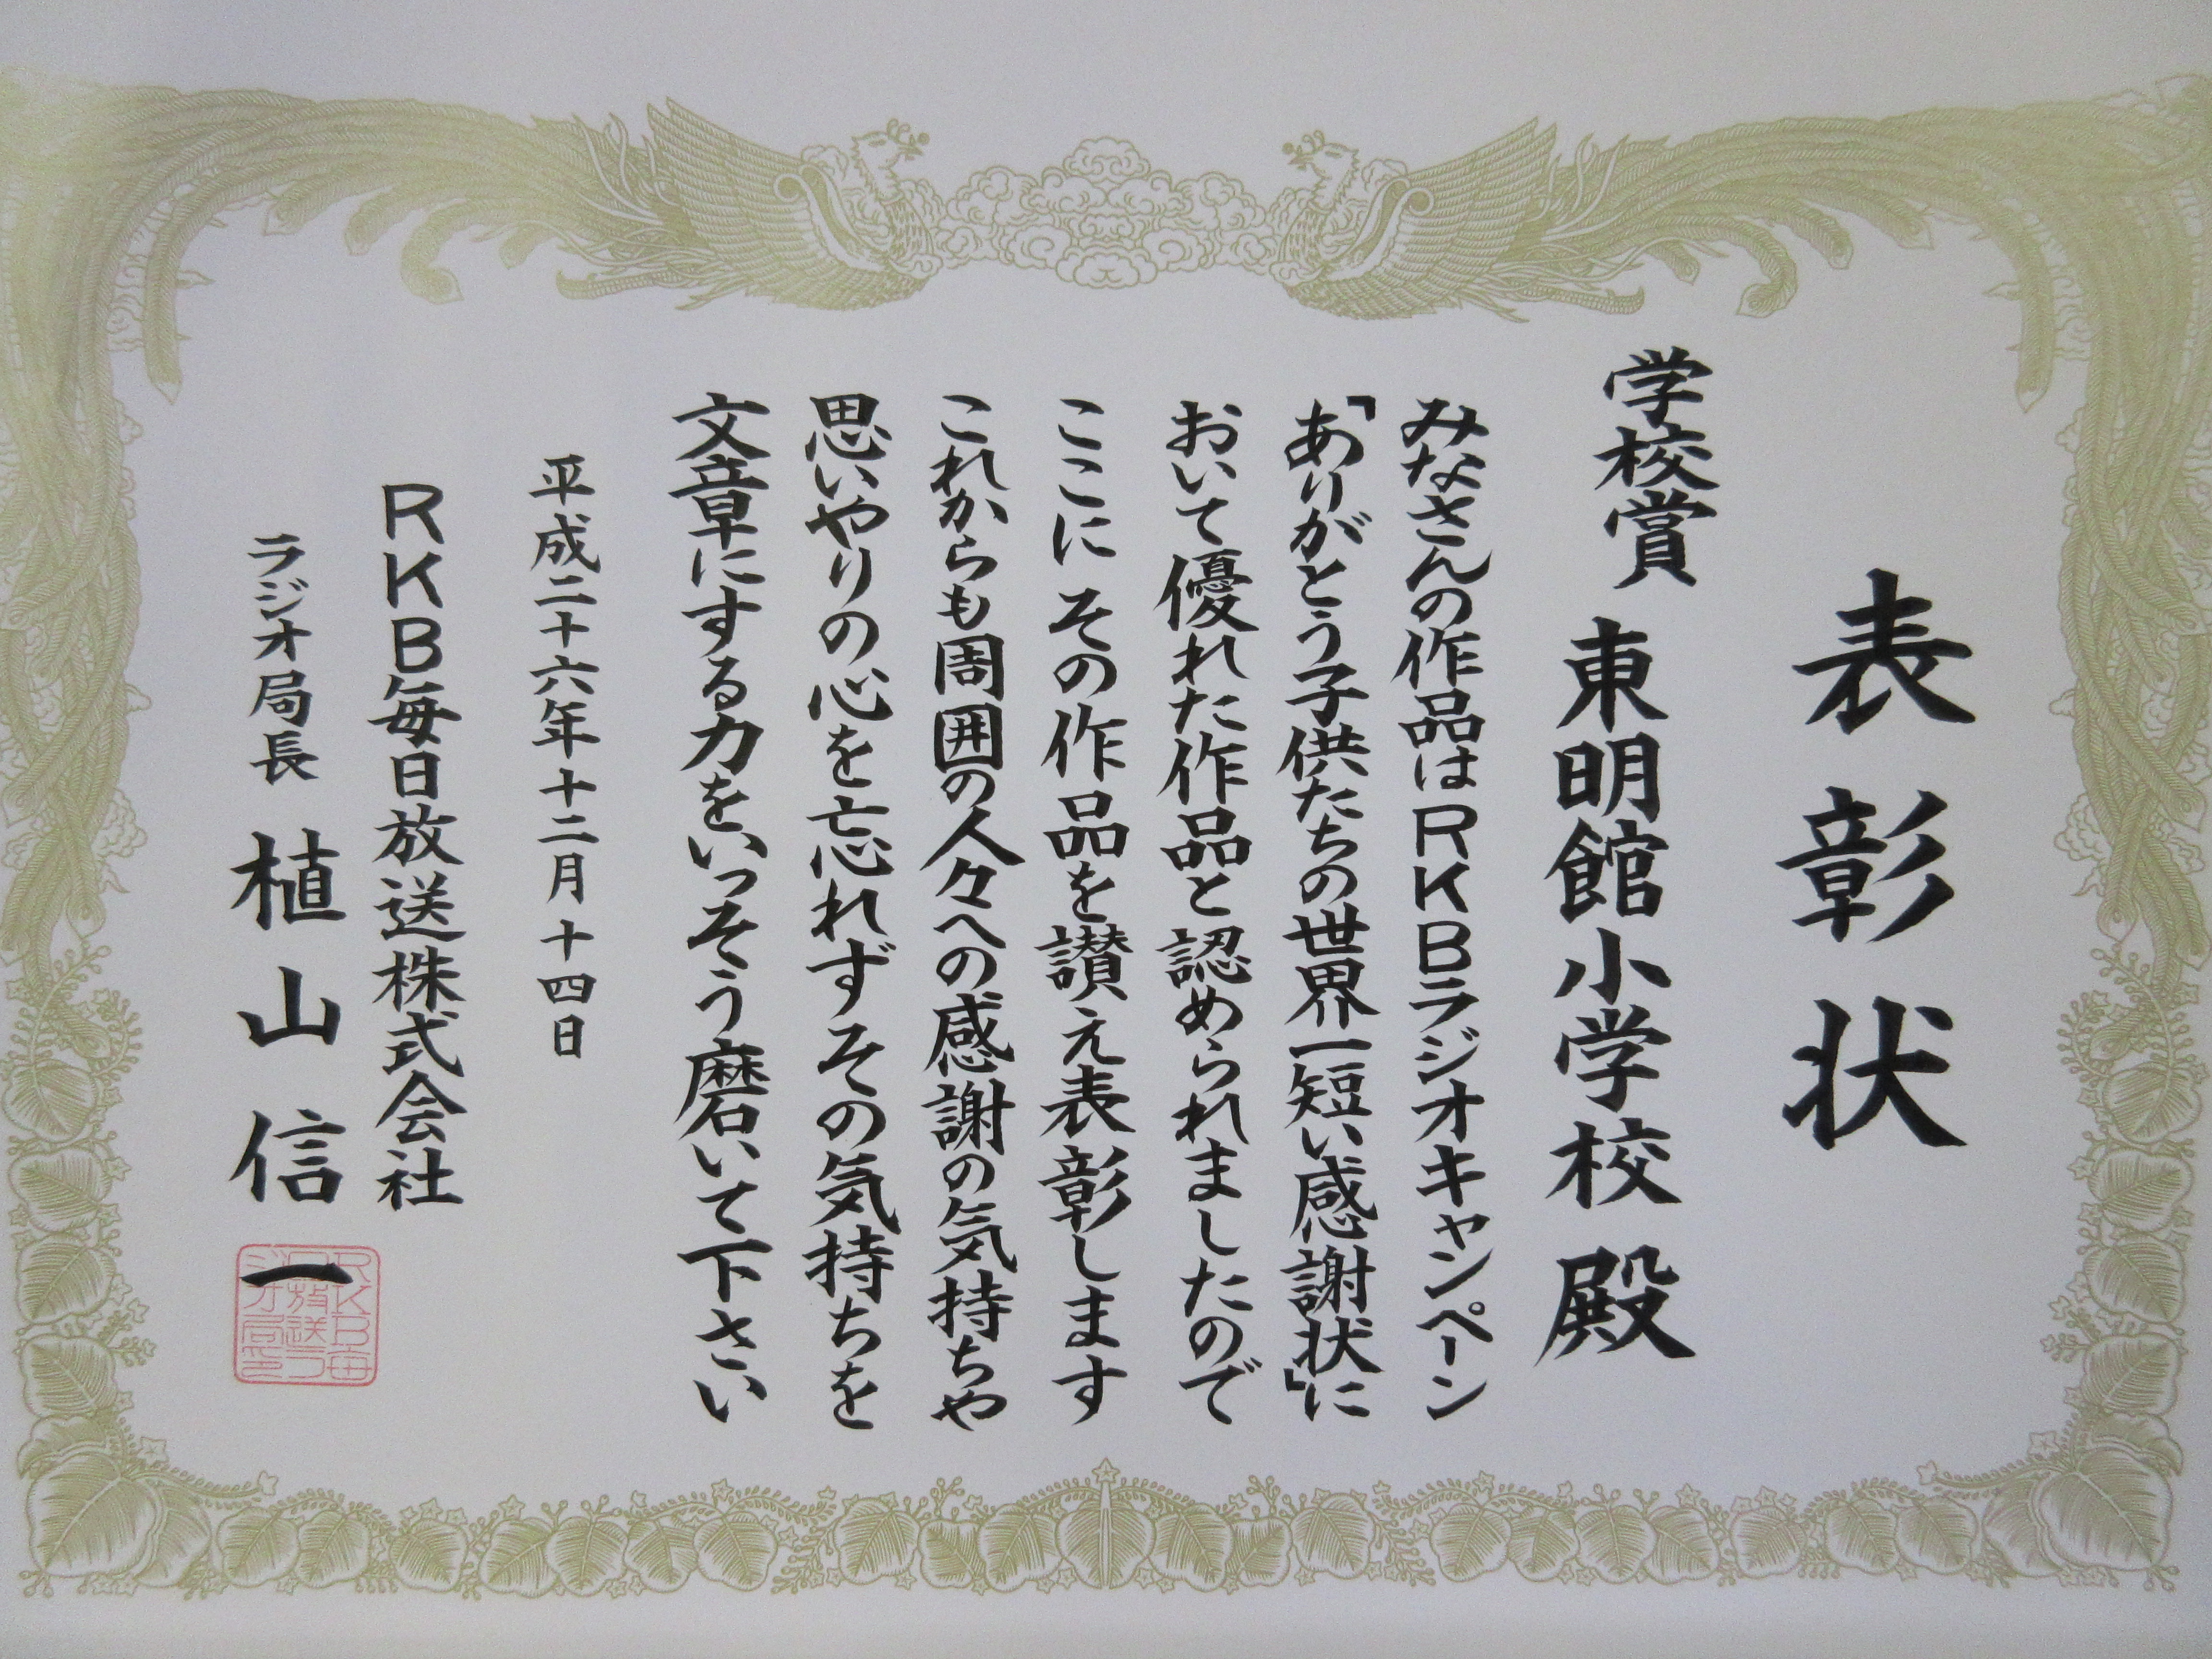 表彰状
学校賞 東明館小学校 殿
みなさんの作品はRKBラジオキャンペーン
「ありがとう子供たちの世界一短い感謝状」に
おいて優れた作品と認められましたので
ここに その作品を讃え表彰します
これからも周囲の人々への感謝の気持ちや
思いやりの心を忘れずその気持ちを
文章にする力をいっそう磨いて下さい
平成二十六年十二月十四日
RKB毎日放送株式会社
ラジオ局長 植山信一
RKB毎
日放送ラ
ジオ局印